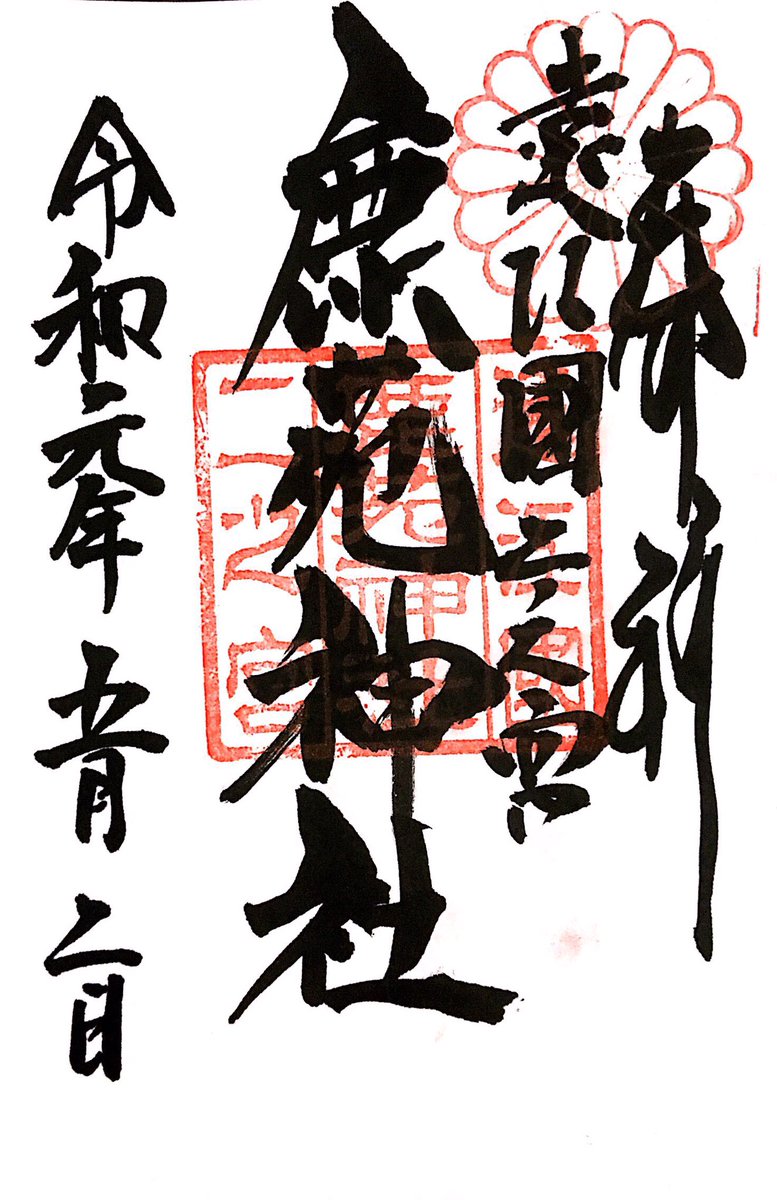 奉拝
遠江國二之宮
鹿苑神社
令和元年五月二日
遠江國
鹿苑神社
二之宮